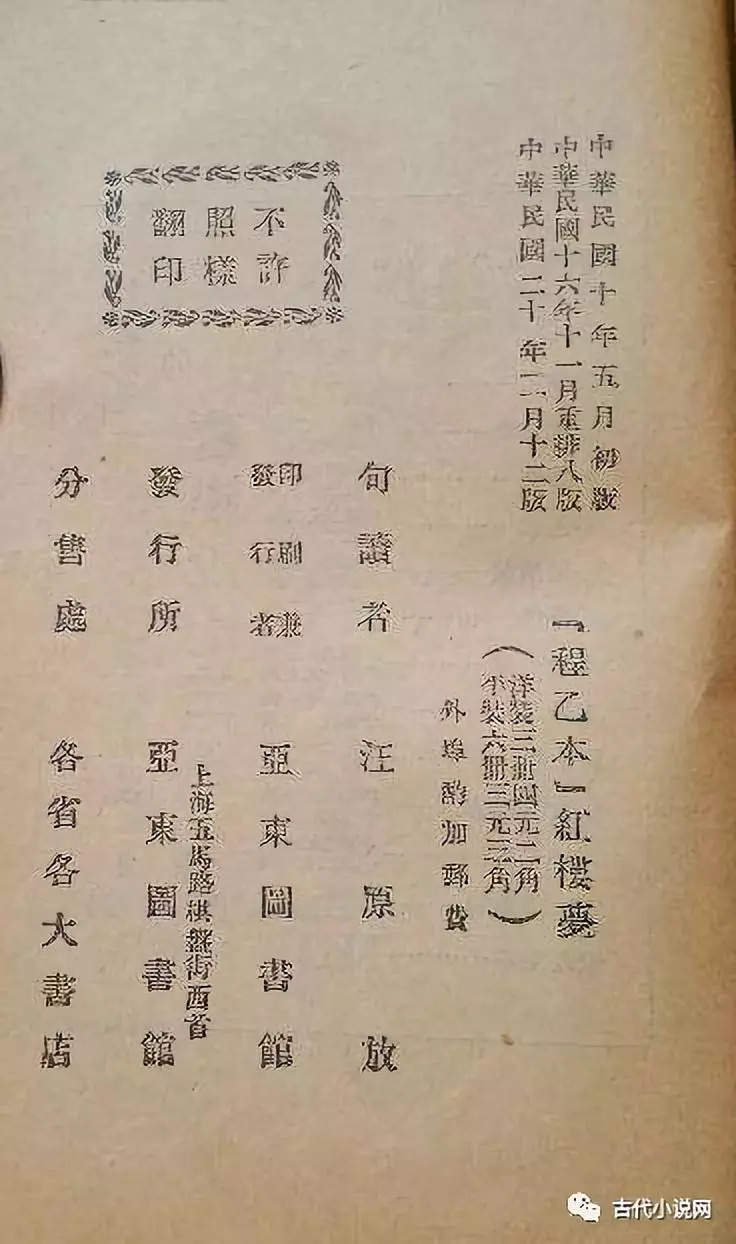 中華民國十年五月初版
中華民國十六年十一月重排八版
中華民國二十年二月十二版
『程乙本』紅樓夢
(洋裝三冊四元二角
平裝六冊三元三角)
外埠酌加郵費
句讀者 汪原放
印刷兼
發行者 亞東圖書館
上海五馬路棋盤街西首
發行所 亞東圖書館
分售處 各省各大書店
不許
照樣
翻印
古代小说网